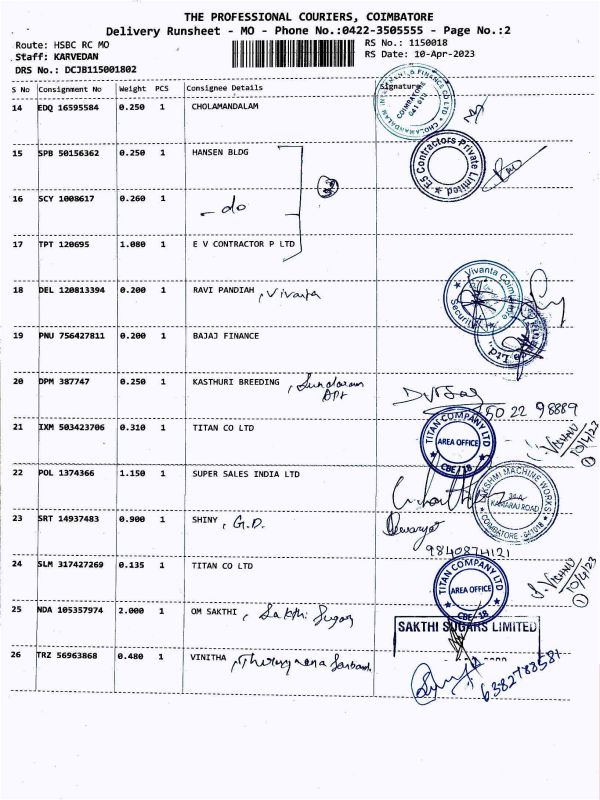 THE PROFESSIONAL COURIERS, COIMBATORE
Delivery Runsheet - MO - Phone No.:0422-3505555 - Page No.:2
Route: HSBC RC MO RS No.: 1150018
Staff: KARVEDAN RS Date: 10-Apr-2023
DRS No.: DCJB115001802
S No Consignment No Weight PCS Consignee Details Signature
14 EDQ 16595584 0.250 1 CHOLAMANDALAM
COIMBATORE
641 018
15 SPB 50156362 0.250 1 HANSEN BLDG
E5 Contractors Private Limited
16 SCY 1008617 0.260 1 - do
17 TPT 120695 1.080 1 E V CONTRACTOR P LTD
18 DEL 120813394 0.200 1 RAVI PANDIAH , Vivanta
Vivanta Coimbatore
Security
19 PNU 756427811 0.200 1 BAJAJ FINANCE
Ltd.
20 DPM 387747 0.250 1 KASTHURI BREEDING , Sundaram
Apt
50 22 98889
21 IXM 503423706 0.310 1 TITAN CO LTD
TITAN COMPANY LTD
AREA OFFICE
CBE-18
VISHNU
10/4/23
1
22 POL 1374366 1.150 1 SUPER SALES INDIA LTD
LAKSHMI MACHINE WORKS
KAMARAJ ROAD
COIMBATORE - 641018
23 SRT 14937483 0.900 1 SHINY , G.D.
9840874121
24 SLM 317427269 0.135 1 TITAN CO LTD
TITAN COMPANY LTD
AREA OFFICE
CBE-18
VISHNU
10/4/23
1
25 NDA 105357974 2.000 1 OM SAKTHI , Sakthi Sugar
SAKTHI SUGARS LIMITED
26 TRZ 56963868 0.480 1 VINITHA ,